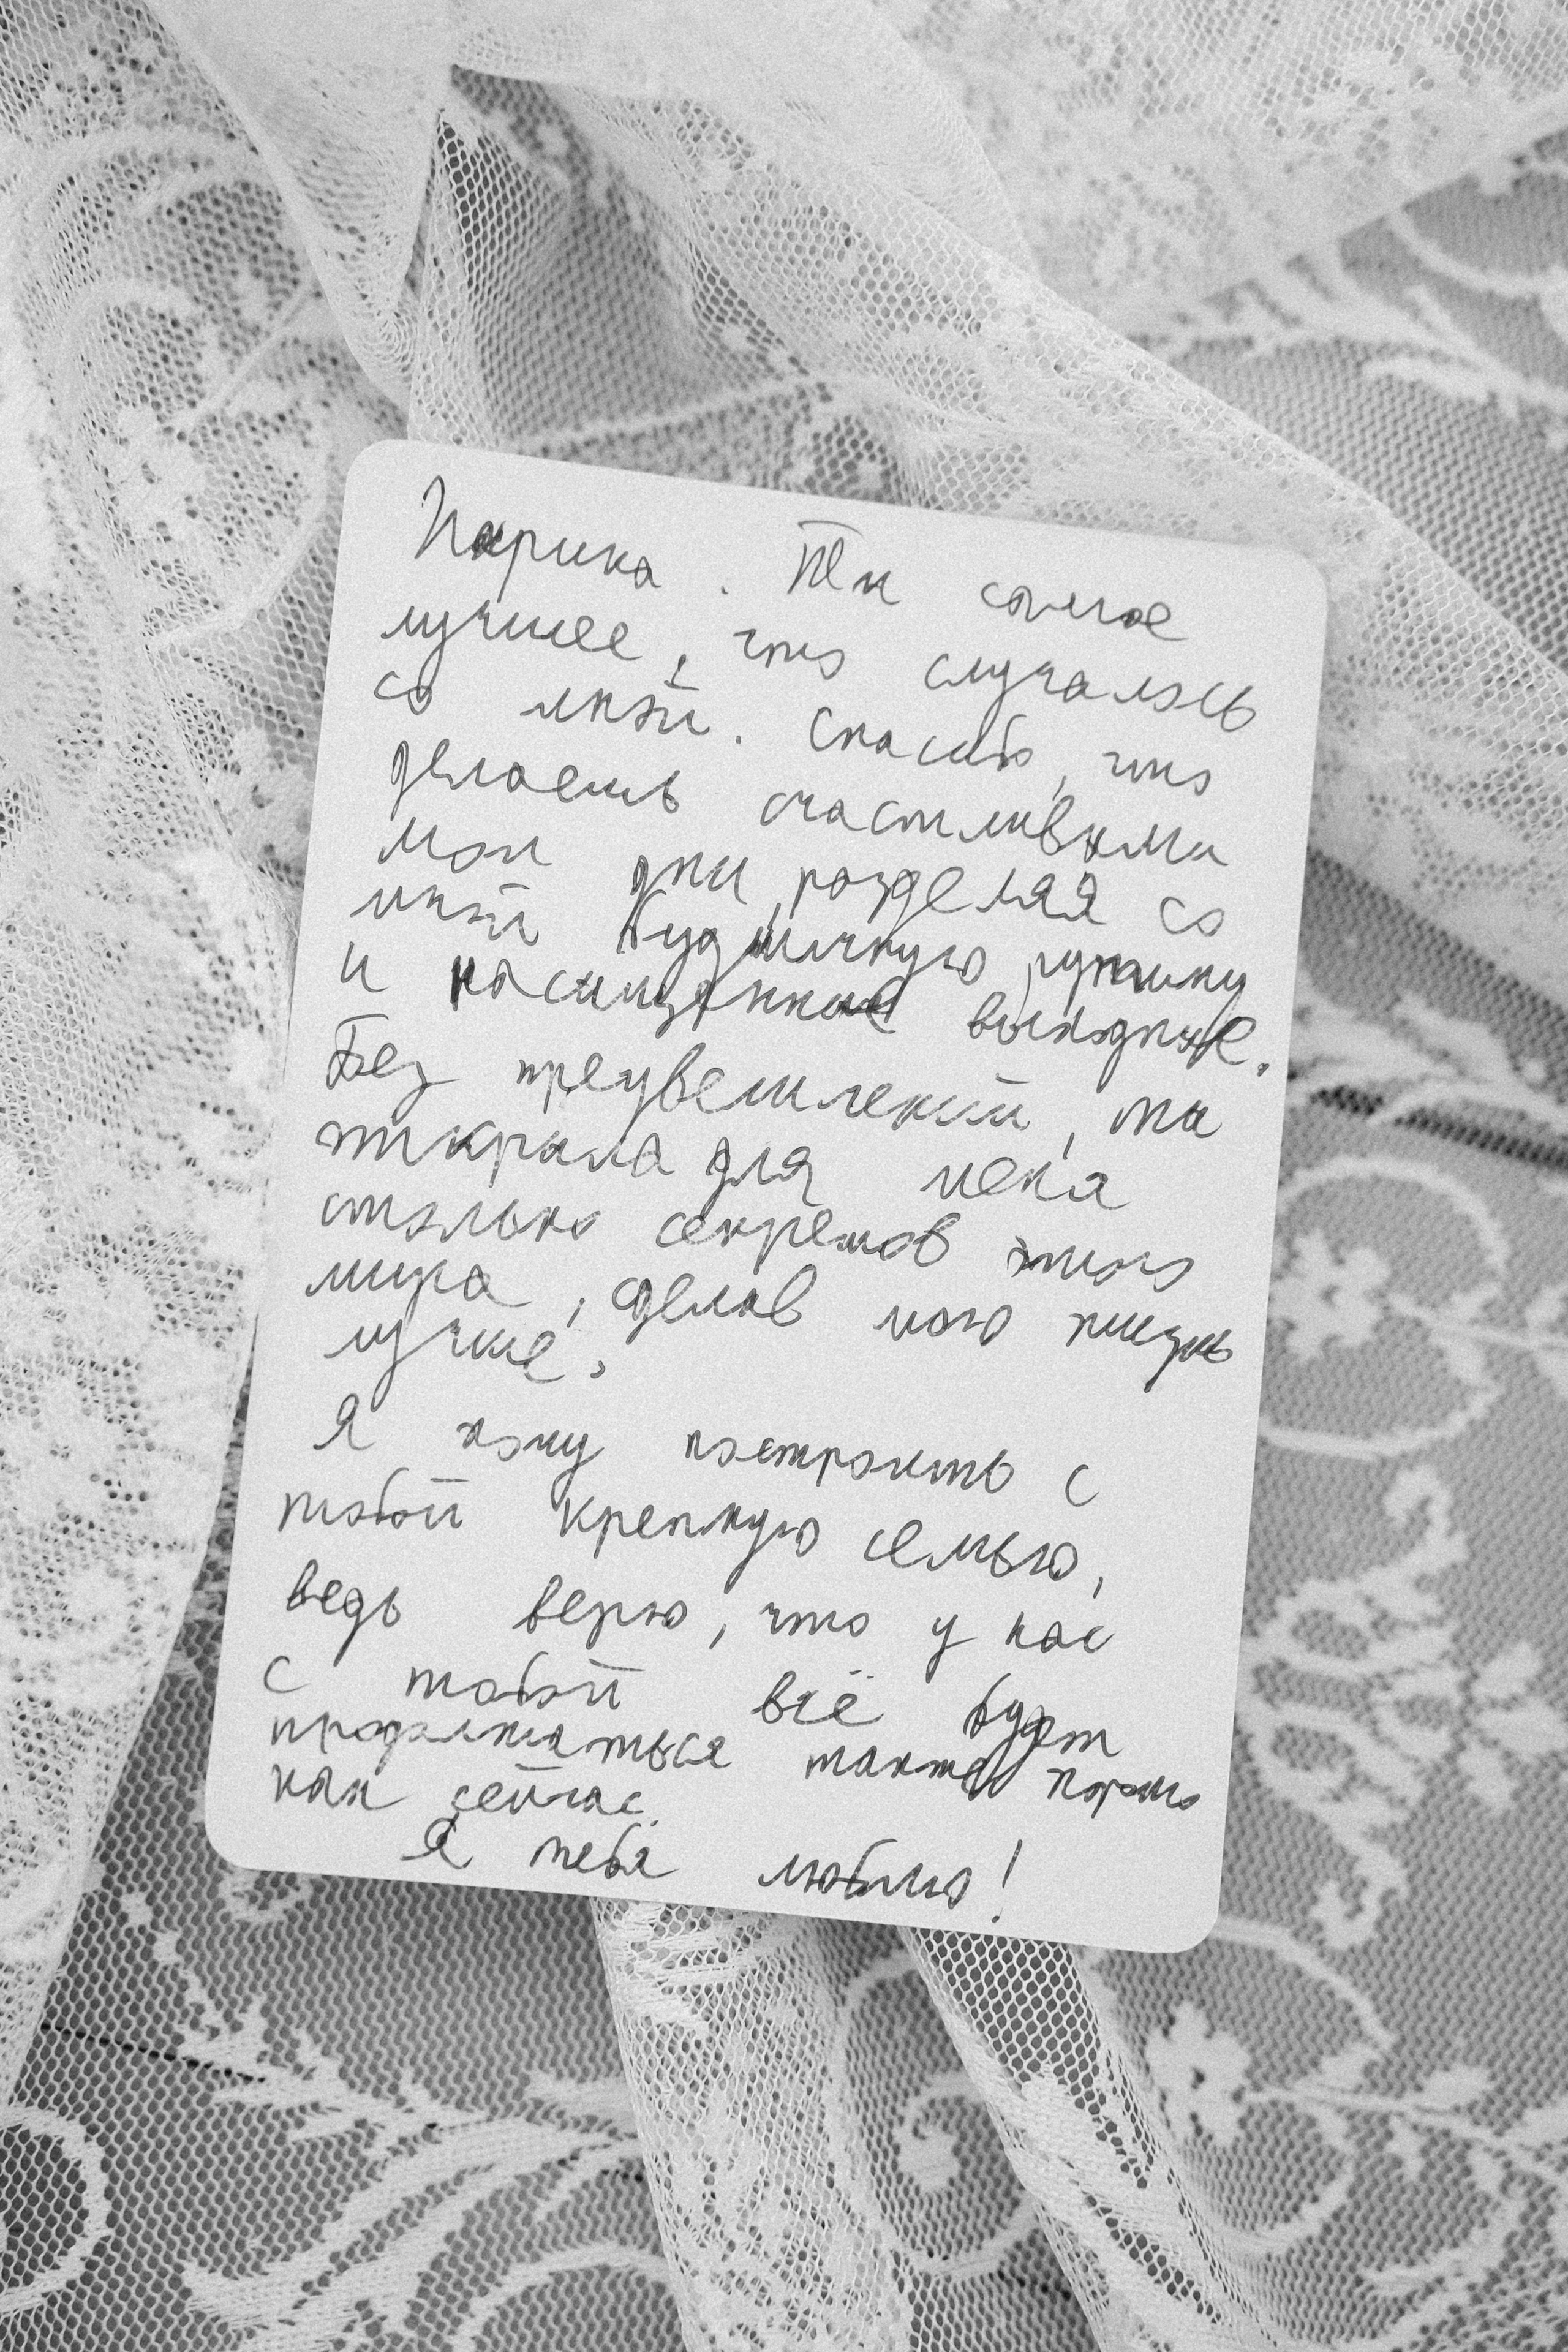 Ты самое
лучшее, что случалось
со мной. Спасибо, что
делаешь счастливыми
мои дни, разделяя со
мной будничную рутину
и насыщенные выходные.
Без преувеличений, ты
открыла для меня
столько секретов этого
мира, сделав мою жизнь
лучше.
Я хочу построить с
тобой крепкую семью,
ведь верю, что у нас
с тобой всё будет
продолжаться также хорошо
как сейчас.
Я тебя люблю!